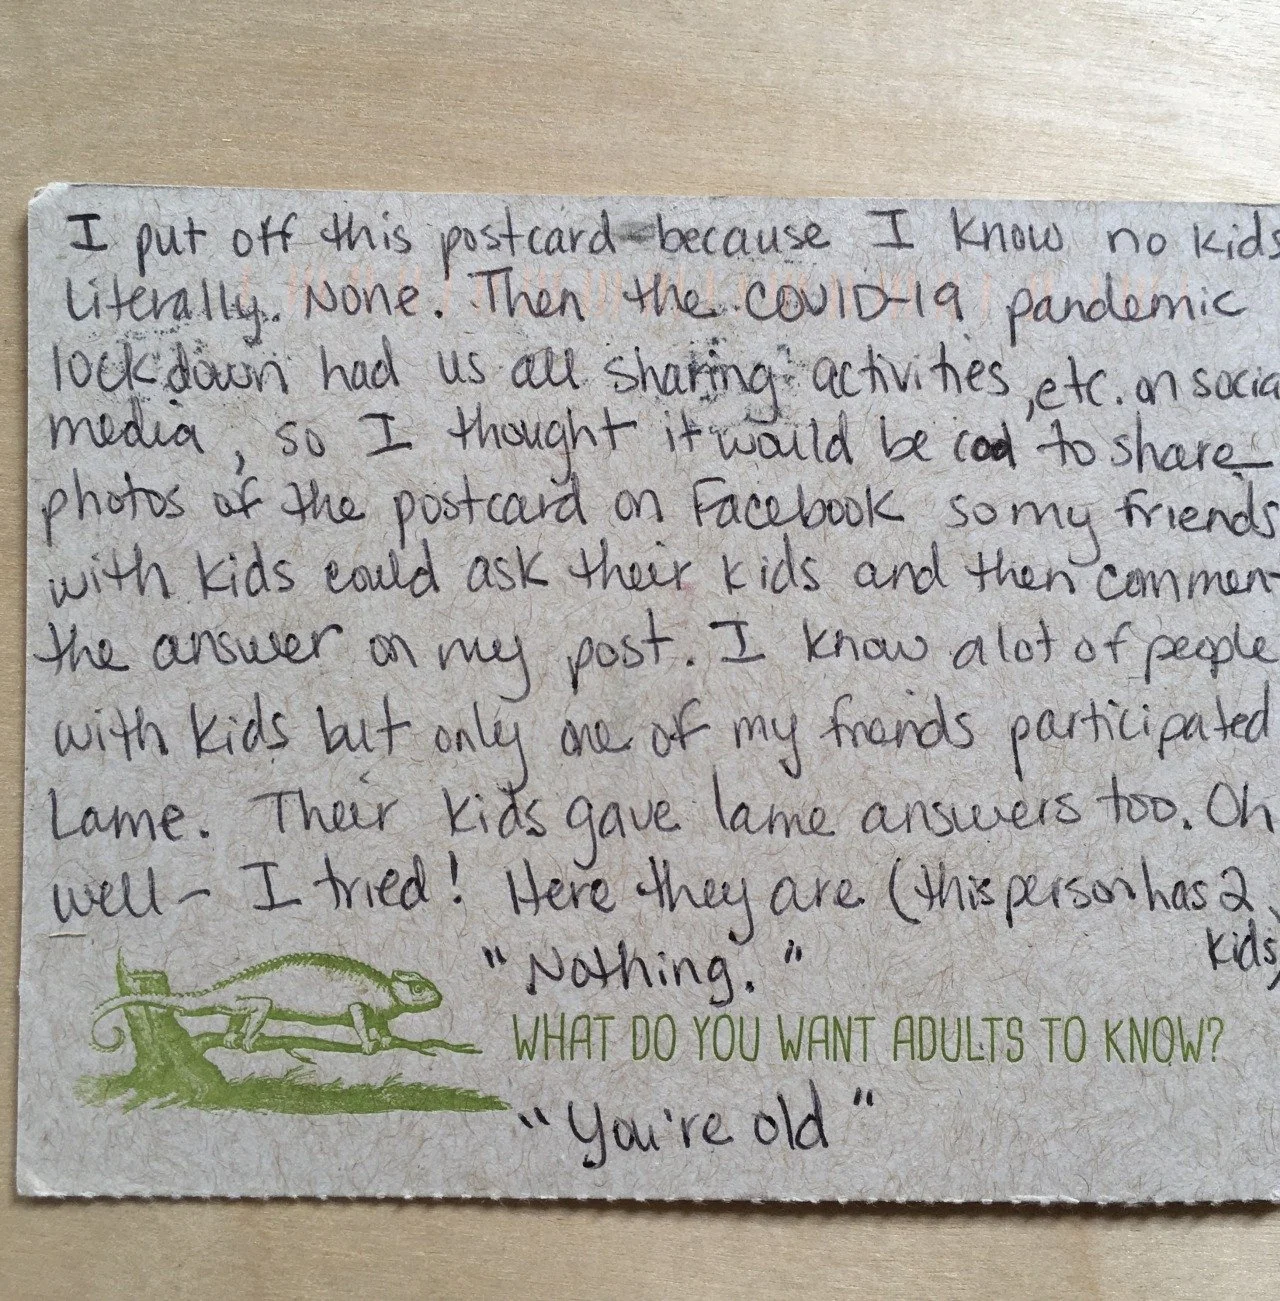 I put off this postcard because I know no kids
Literally. None. Then the COVID-19 pandemic
lockdown had us all sharing activities, etc. on socia
media, so I thought it would be cool to share
photos of the postcard on Facebook so my friends
with kids could ask their kids and then commen
the answer on my post. I know a lot of people
with kids but only one of my friends participated
Lame. Their kids gave lame answers too. Oh
well- I tried! Here they are (this person has 2
kids)
"Nothing."
WHAT DO YOU WANT ADULTS TO KNOW?
"You're old"